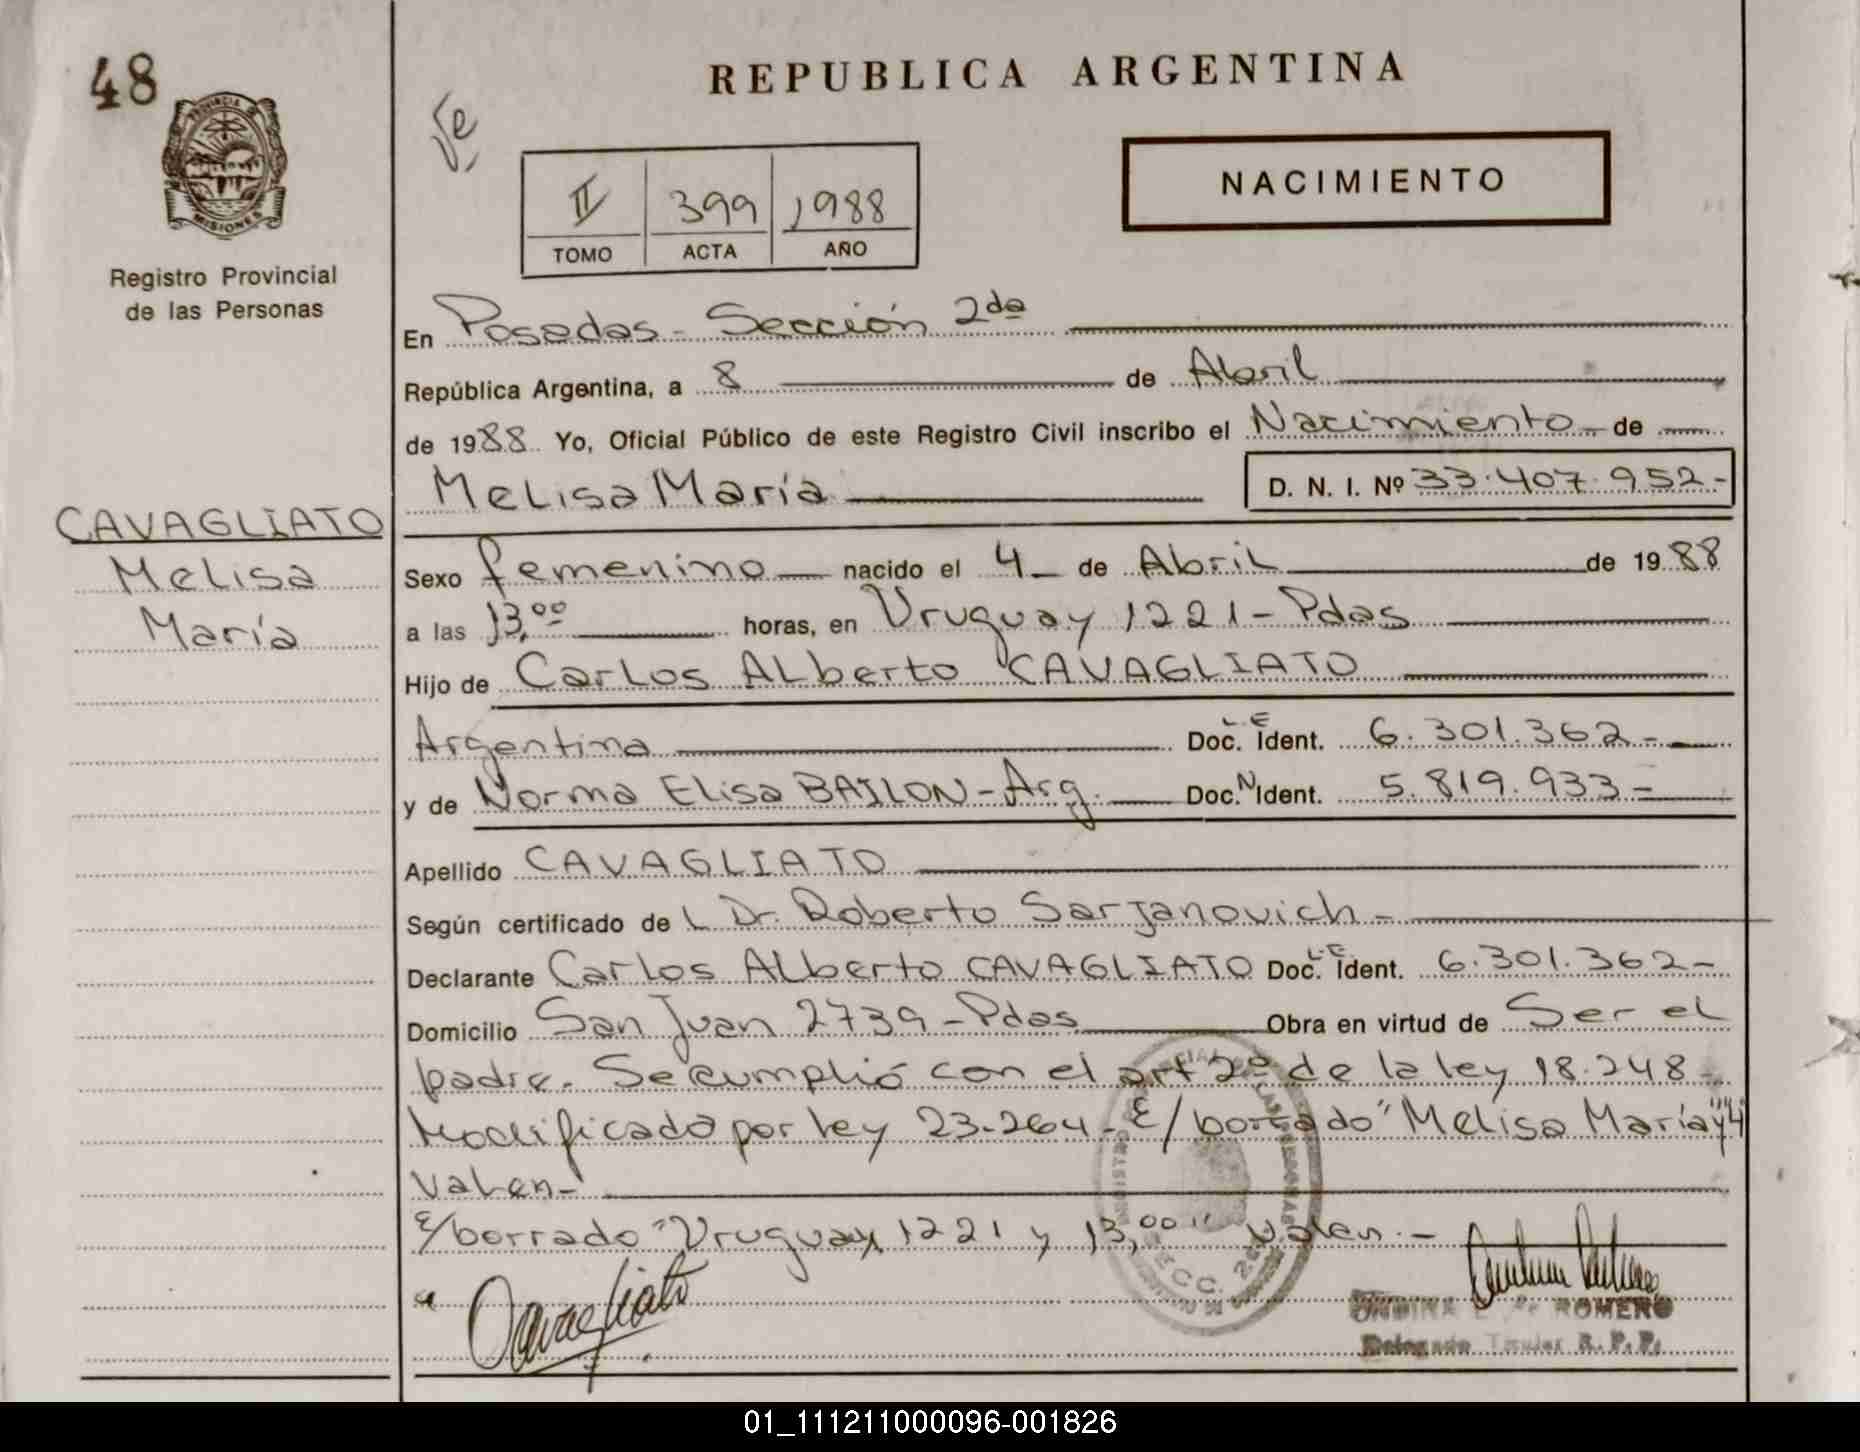 48
REPUBLICA ARGENTINA
PROVINCIA DE
MISIONES
Registro Provincial
de las Personas
II 399 1988
TOMO ACTA AÑO
NACIMIENTO
En Posadas - Sección 2da
República Argentina, a 8 de Abril
de 1988 Yo, Oficial Público de este Registro Civil inscribo el Nacimiento de
Melisa María D. N. I. Nº 33.407.952-
CAVAGLIATO
Melisa
María
Sexo femenino nacido el 4 de Abril de 1988
a las 13,00 horas, en Uruguay 1221 - Pdas
Hijo de Carlos Alberto CAVAGLIATO
Argentina L.E Doc. Ident. 6.301.362-
y de Norma Elisa BAILON - Arg. Doc. N Ident. 5.819.933-
Apellido CAVAGLIATO
Según certificado de L Dr. Roberto Sarjanovich -
Declarante Carlos Alberto CAVAGLIATO L.E Doc. Ident. 6.301.362-
Domicilio San Juan 2739 - Pdas Obra en virtud de Ser el
padre. Se cumplió con el art 2º de la ley 18.248
Modificado por ley 23.264 - E/borrado "Melisa María" y "4"
Valen-
E/borrado "Uruguay 1221 y 13,00" valen.-
Cavagliato
SECC. 2a
ROMERO
Delegado Titular R. P. P.
01_111211000096-001826